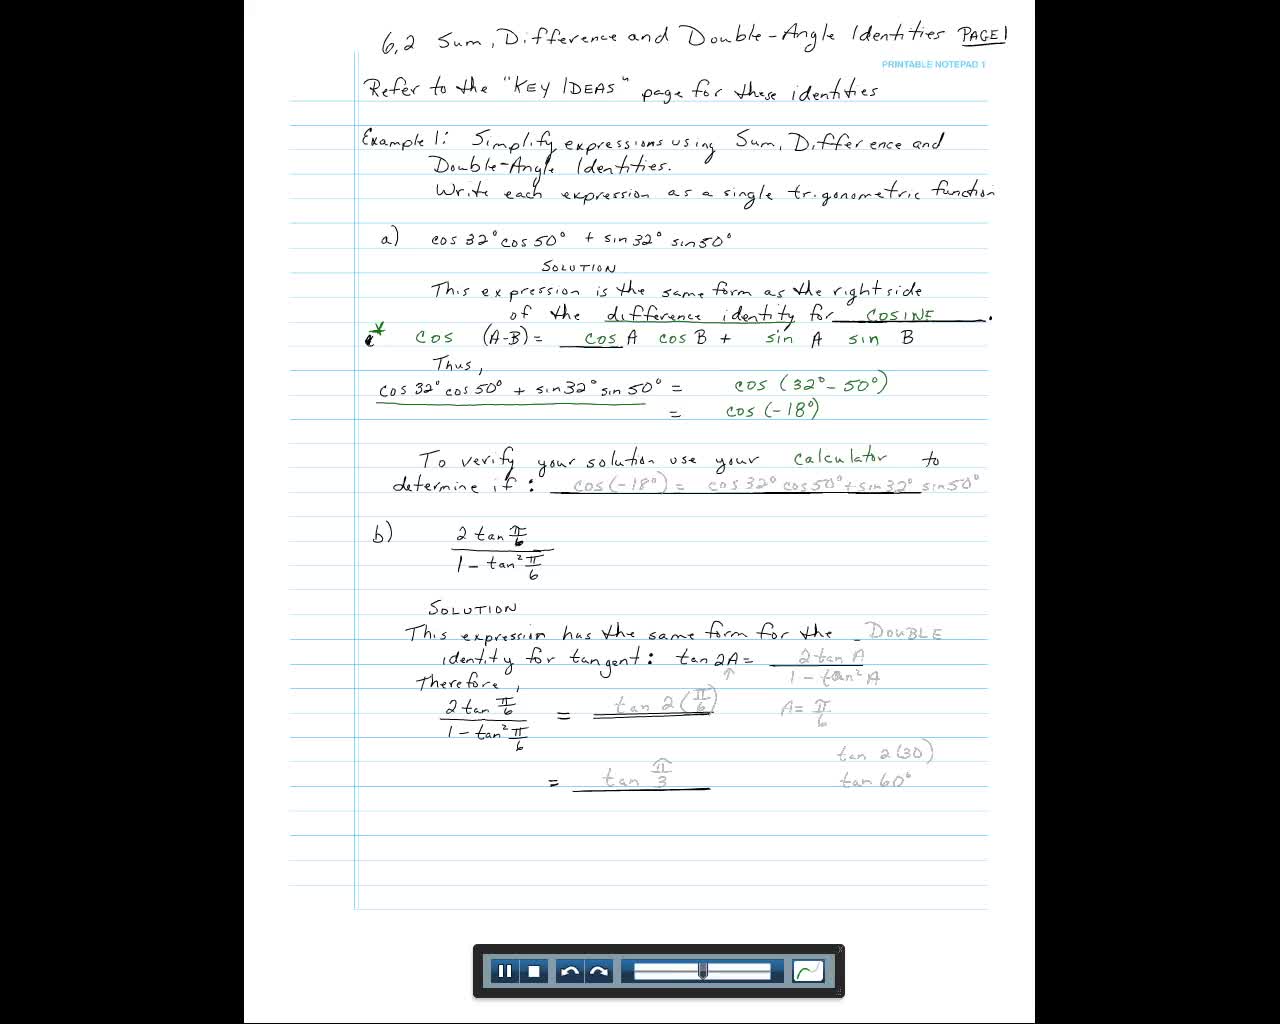 6.2 Sum, Difference and Double-Angle Identities PAGE 1
PRINTABLE NOTEPAD 1
Refer to the "KEY IDEAS" page for these identities
Example 1: Simplify expressions using Sum, Difference and
Double-Angle Identities.
Write each expression as a single trigonometric function
a) cos 32° cos 50° + sin 32° sin 50°
SOLUTION
This expression is the same form as the right side
of the difference identity for COSINE.
* cos (A-B) = cos A cos B + sin A sin B
Thus,
cos 32° cos 50° + sin 32° sin 50° = cos (32° - 50°)
= cos (-18°)
To verify your solution use your calculator to
determine if: cos(-18°) = cos 32° cos 50° + sin 32° sin 50°
b) 2 tan π/6
1 - tan² π/6
SOLUTION
This expression has the same form for the DOUBLE
identity for tangent: tan 2A = 2 tan A
↑ 1 - tan² A
Therefore,
2 tan π/6 = tan 2 (π/6) A = π/6
1 - tan² π/6
tan 2(30)
= tan π/3 tan 60°